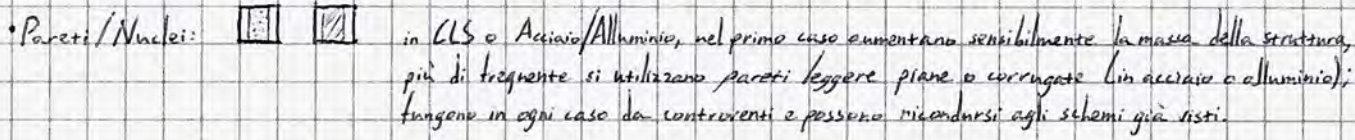 • Pareti/Nuclei: in CLS o Acciaio/Alluminio, nel primo caso aumentano sensibilmente la massa della struttura,
più di frequente si utilizzano pareti leggere piane o corrugate (in acciaio o alluminio);
fungono in ogni caso da controventi e possono ricondursi agli schemi già visti.